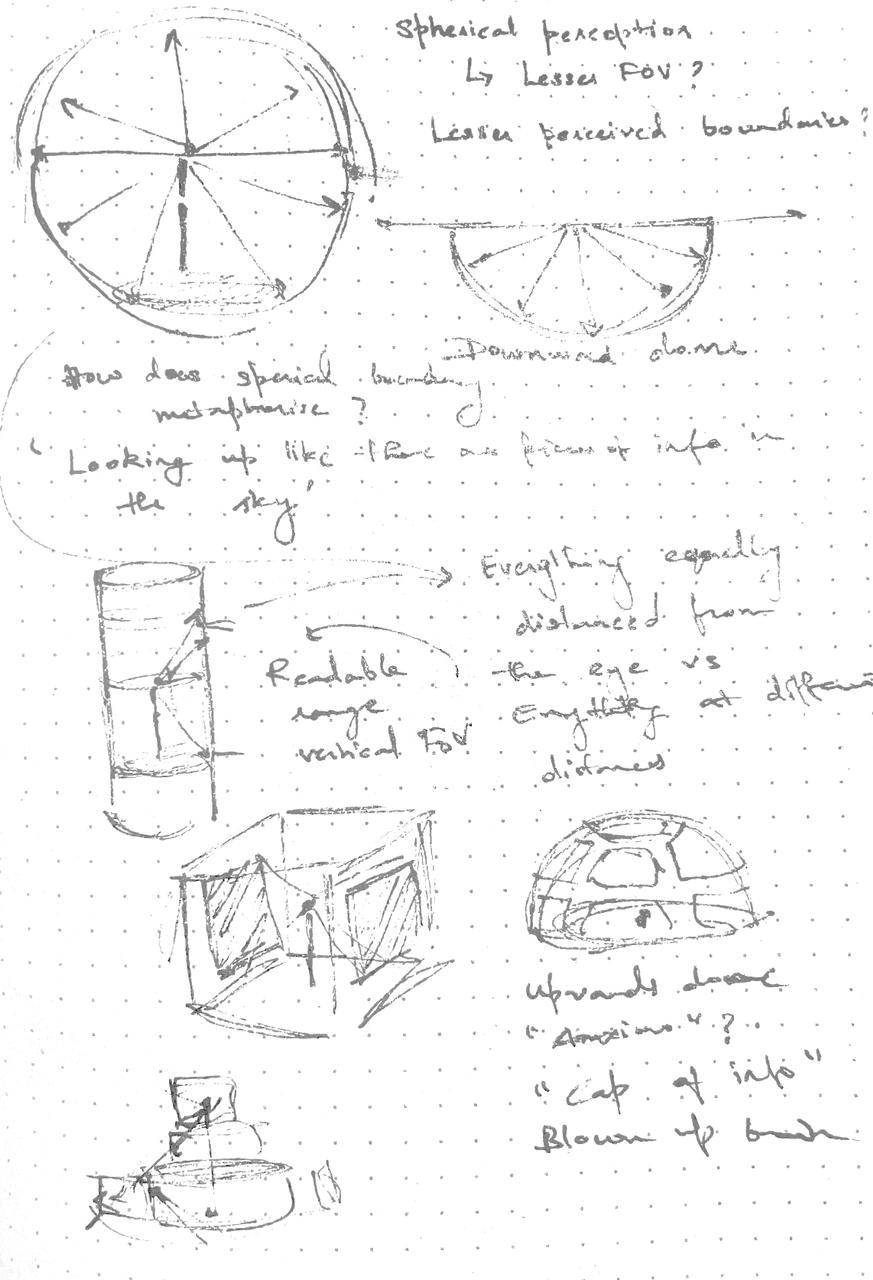 Spherical perception
↳ Lesser FOV ?
Lesser perceived boundaries ?
Downward dome
How does sperical boundary
metaphorise ?
' Looking up like there are pieces of info in
the sky '
Everything equally
distanced from
the eye vs
Everything at different
distances
Readable
range
vertical FoV
Upwards dome
"Anxious" ?
"Cap of info"
Blown up